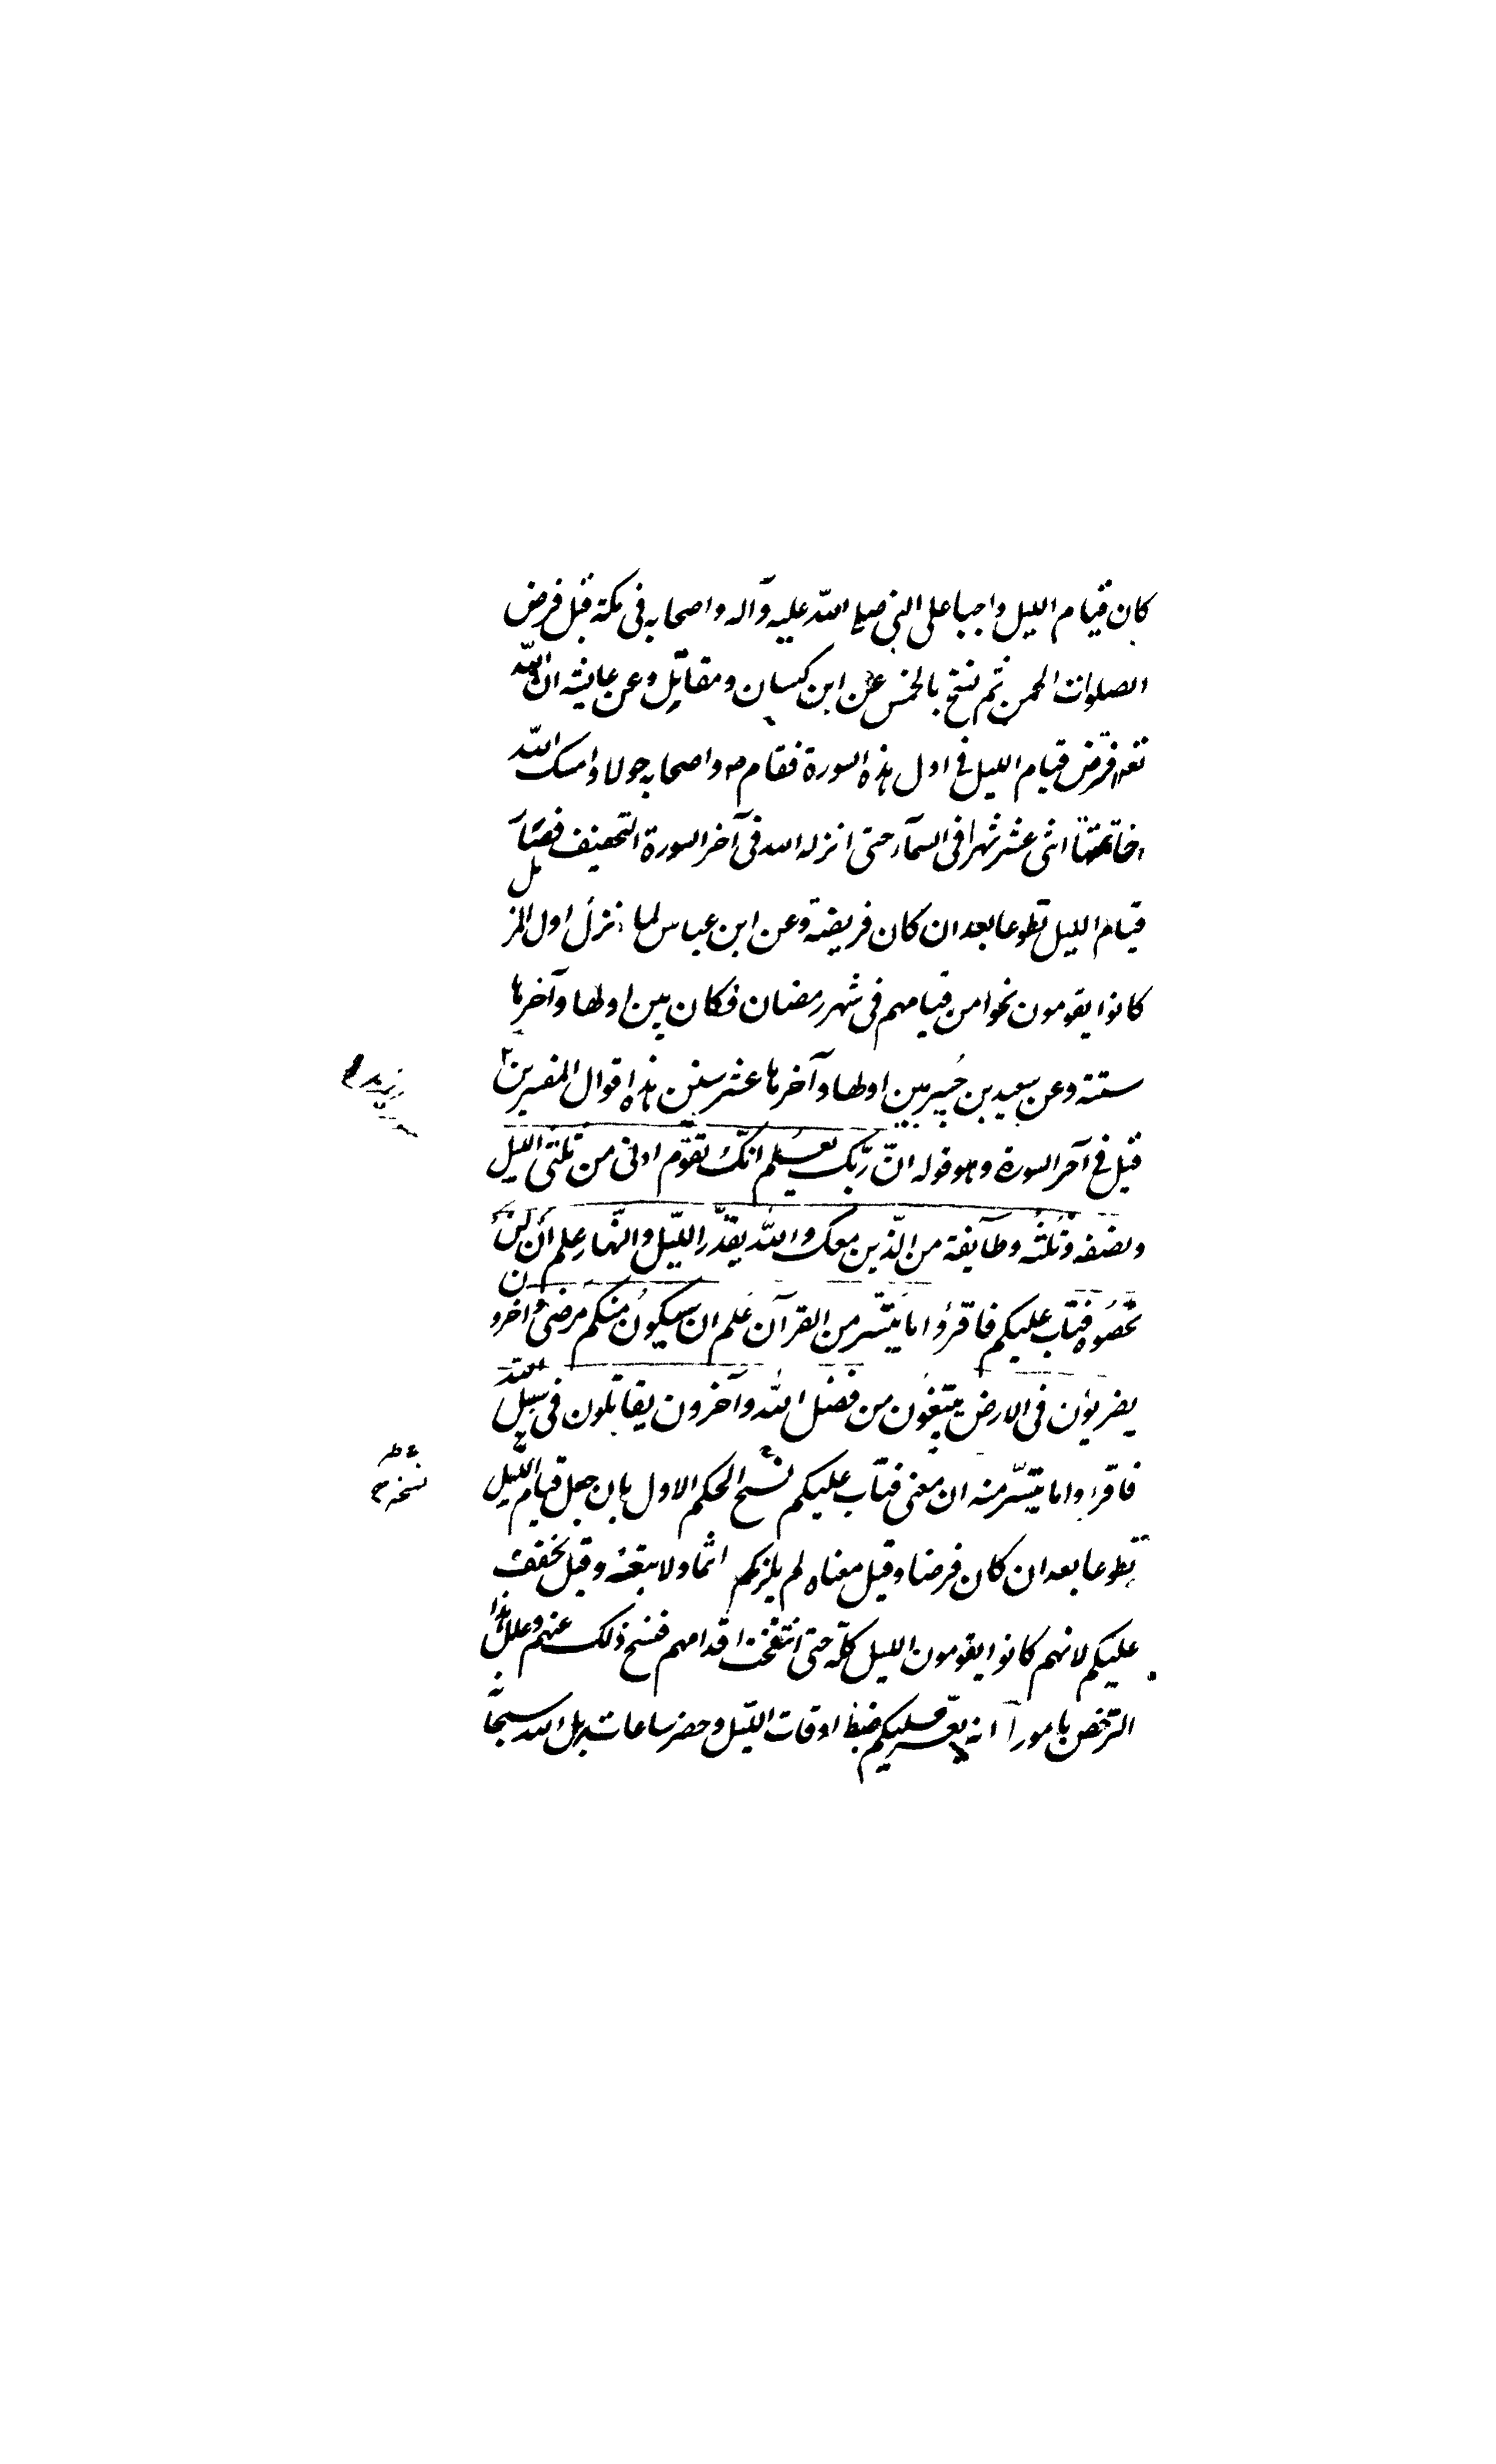 كان قيام الليل واجبا على النبي صلى الله عليه وآله واصحابه فى مكة قبل فرض
الصلوات الخمس ثم نسخ بالخمس عن ابن كيسان ومقاتل وعن عايشه ان الله
تعه فرض قيام الليل فى اول هذه السورة فقام ص واصحابه حولا وامسك الله
خاتمتها اثنى عشر شهرا فى السمآء حتى انزل الله فى آخر السورة التخفيف فصار
قيام الليل تطوعا بعد ان كان فريضة وعن ابن عباس لما نزل اول المزمل
كانوا يقومون نحوا من قيامهم فى شهر رمضان فكان بين اولها وآخرها
سنة وعن سعيد بن جُبير بين اولها وآخرها عشر سنين هذه اقوال المفسرين
قبل فى آخر السورة وهو قوله انّ ربّك يعلم انّك تقوم ادنى من ثلثى الليل
ونصفه وثُلثُه وطآيفة من الّذين معك والله يقدّر اللّيل والنّهار علم أن لن
تحصُوه فتاب عليكم فاقرؤا ما تيسّر من القرآن علم ان سيكونُ منكم مرضى وآخرون
يضربون فى الارض يبتغون من فضل الله وآخرون يقاتلون فى سبيل الله
فاقرءوا ما تيسّر منه ان معنى فتاب عليكم نسخ الحكم الاول بان جعل قيام اللّيل
تطوعا بعد ان كان فرضا وقيل معناه لم يلزمكم اثما ولا تبعة وقيل خفف
عليكم لانهم كانوا يقومون الليل كلّه حتى انتفخت اقدامهم فنسخ ذلك عنهم وعلل هذا
الترخص بامور آ انه يتعسر عليكم ضبط اوقات اللّيل وحصر ساعاته بل الله سبحا
نسخه